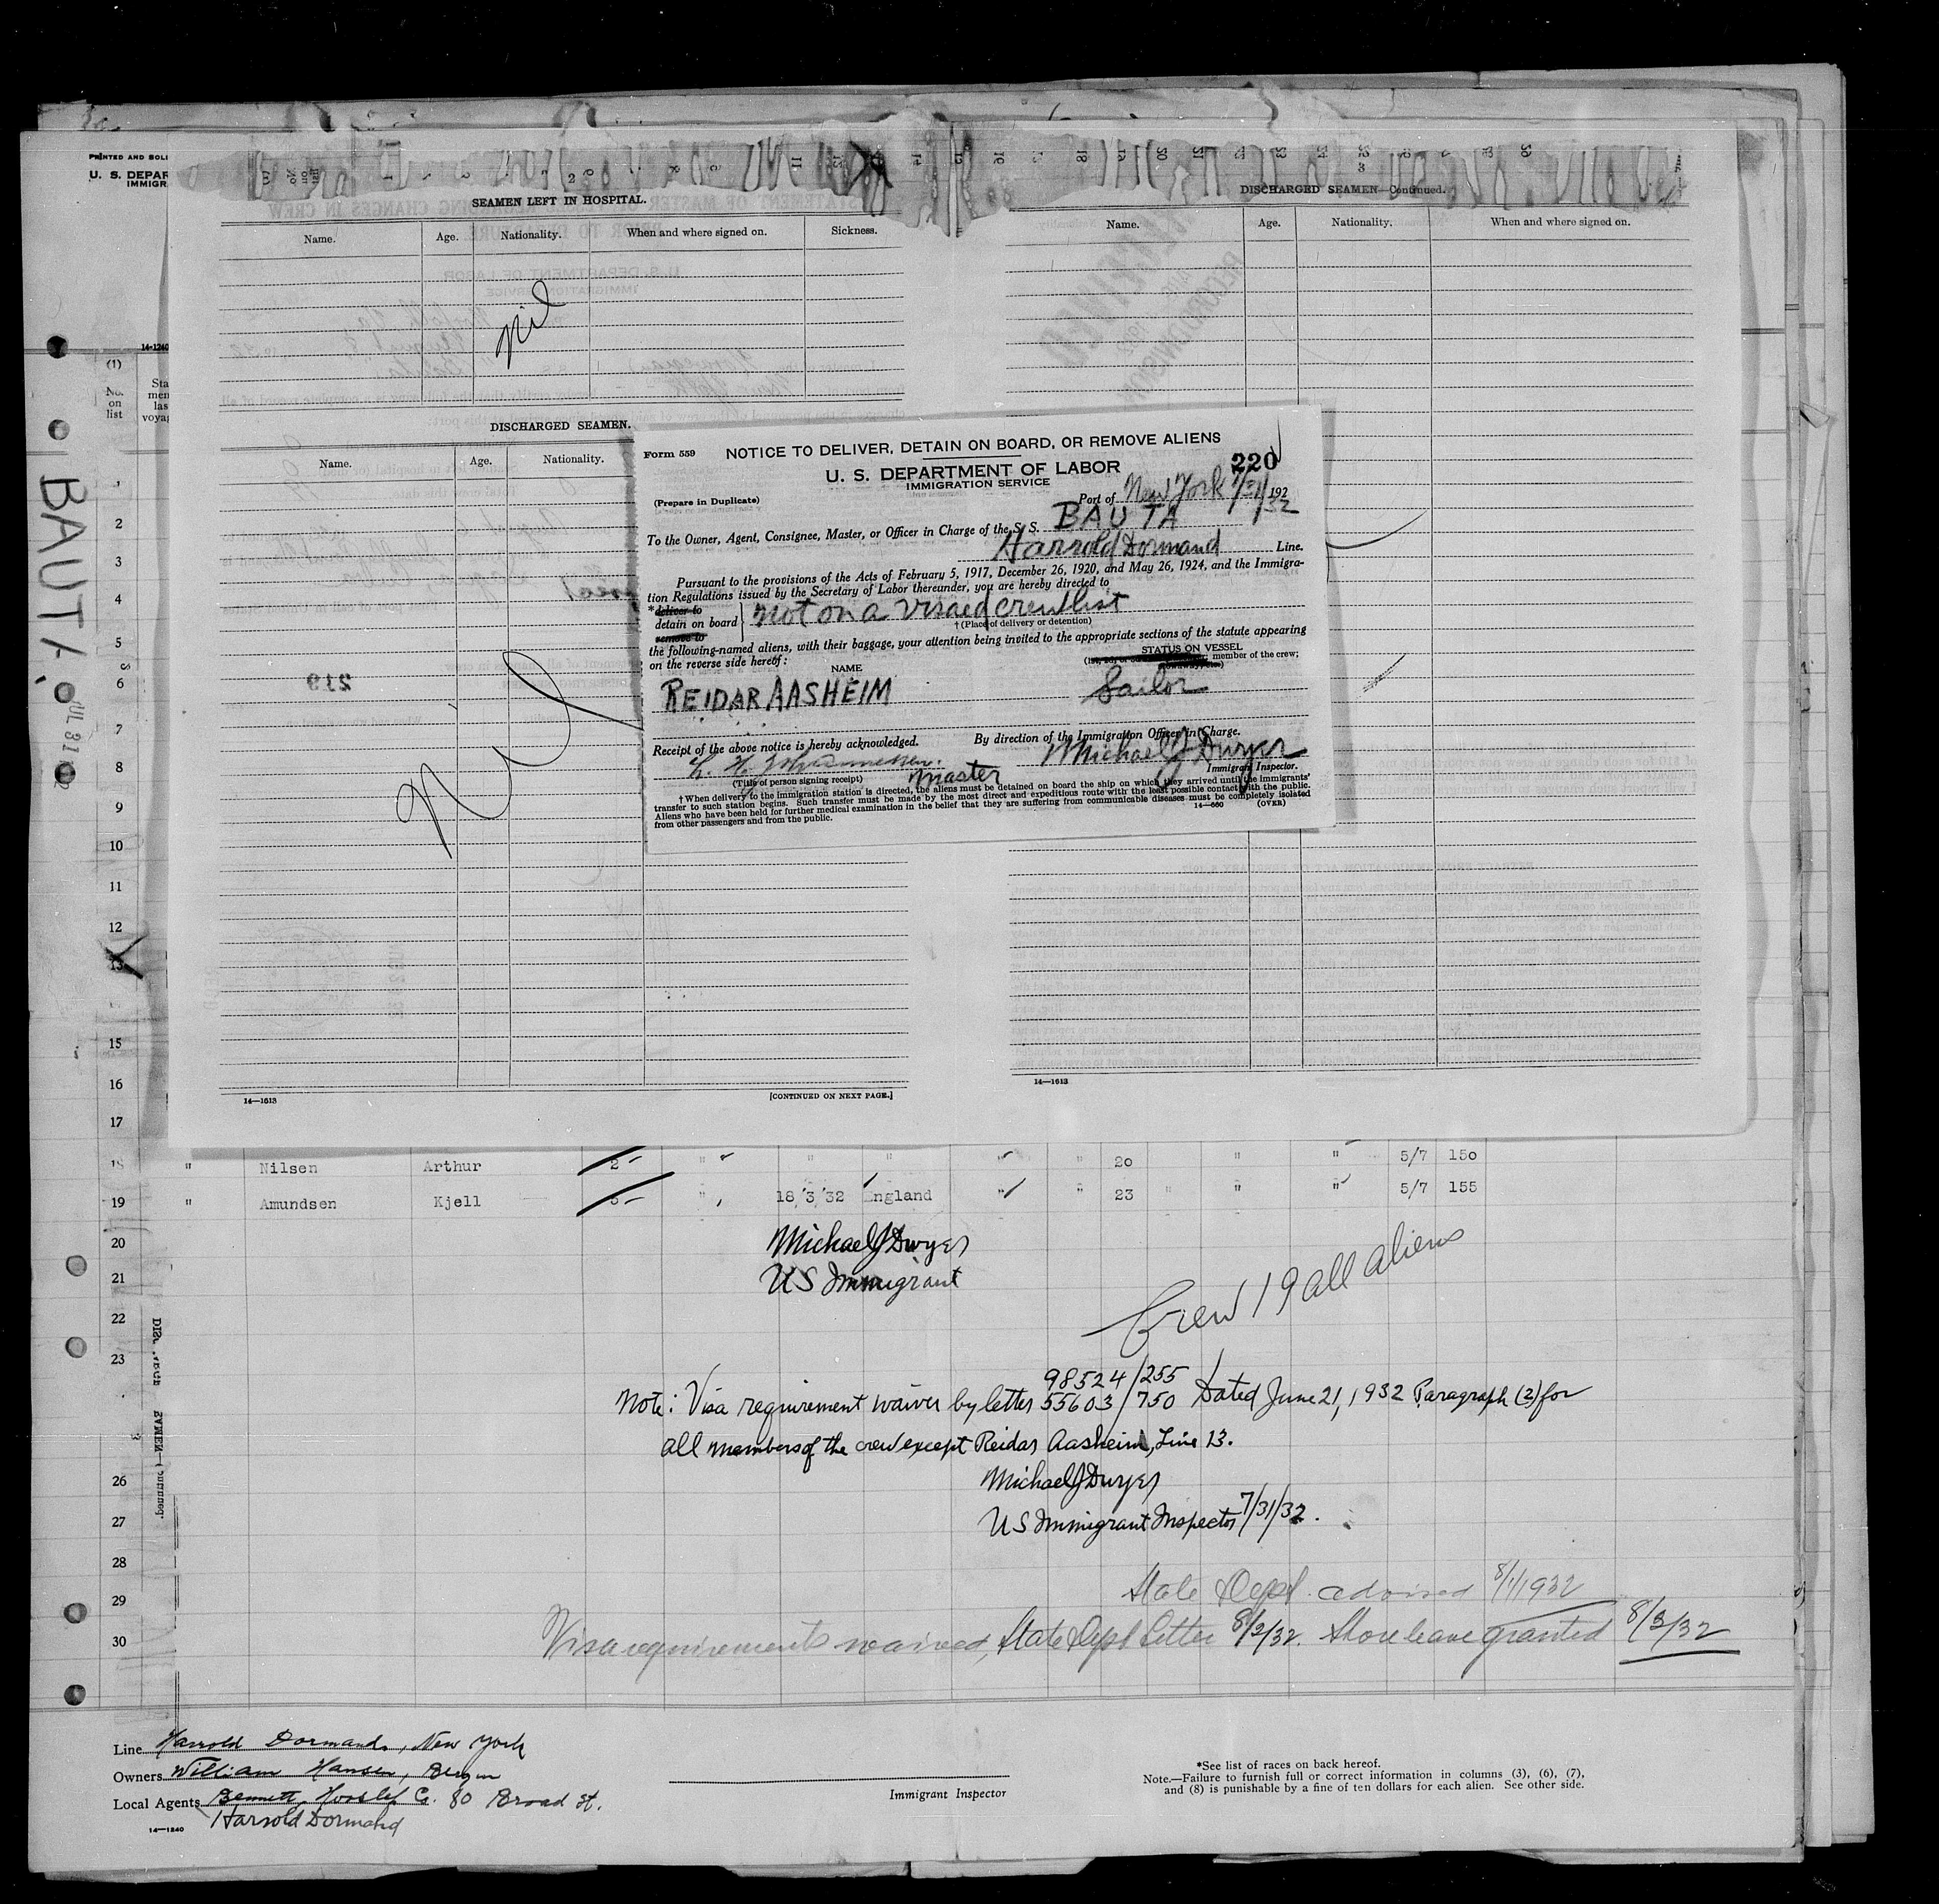 PRINTED AND SOLD
U. S. DEPAR
IMMIGR
14-1240
(1)
No. on list
BAUTA
JUL 31 1932
2
SEAMEN LEFT IN HOSPITAL.
Name. Age. Nationality. When and where signed on. Sickness.
Nil
DISCHARGED SEAMEN.
Name. Age. Nationality.
Nil
14—1613 [CONTINUED ON NEXT PAGE.]
3
DISCHARGED SEAMEN—Continued.
Name. Age. Nationality. When and where signed on.
14—1613
Form 559 NOTICE TO DELIVER, DETAIN ON BOARD, OR REMOVE ALIENS
220
U. S. DEPARTMENT OF LABOR
IMMIGRATION SERVICE
(Prepare in Duplicate) Port of New York 7/31/32 192
To the Owner, Agent, Consignee, Master, or Officer in Charge of the S. S. BAUTA
Harrold Dormand Line.
Pursuant to the provisions of the Acts of February 5, 1917, December 26, 1920, and May 26, 1924, and the Immigra-
tion Regulations issued by the Secretary of Labor thereunder, you are hereby directed to
*deliver to
detain on board not on a visaed crewlist
remove to
†(Place of delivery or detention)
the following-named aliens, with their baggage, your attention being invited to the appropriate sections of the statute appearing
on the reverse side hereof:
NAME STATUS ON VESSEL
member of the crew;
REIDAR AASHEIM Sailor
Receipt of the above notice is hereby acknowledged. By direction of the Immigration Officer in Charge.
Michael J Dwyer
Master Immigrant Inspector.
(Title of person signing receipt)
†When delivery to the immigration station is directed, the aliens must be detained on board the ship on which they arrived until the immigrants'
transfer to such station begins. Such transfer must be made by the most direct and expeditious route with the least possible contact with the public.
Aliens who have been held for further medical examination in the belief that they are suffering from communicable diseases must be completely isolated
from other passengers and from the public. 14—660 (OVER)
2
3
4
5
6
7
8
9
10
11
12
13
15
16
17
18 " Nilsen Arthur 2- " " " " " 20 " " 5/7 150
19 " Amundsen Kjell " 18/3/32 England " " 23 " " " 5/7 155
20 Michael J Dwyer
21 US Immigrant
22 Crew 19 all aliens
23
98524/255
Note: Visa requirement waiver by letter 55603/750 Dated June 21, 1932 Paragraph (2) for
all members of the crew except Reidar Aasheim, Line 13.
26 Michael J Dwyer
27 US Immigrant Inspector 7/31/32.
28
29 State Dept. advised 8/1/1932
30 Visa requirements waived, State Dept letter 8/2/32. Shore leave granted 8/3/32
Line Harrold Dormand, New York
Owners William Hansen, Bergen
Local Agents Bennett, Hvoslef Co. 80 Broad St.
Harrold Dormand
14—1240
Immigrant Inspector
*See list of races on back hereof.
Note.—Failure to furnish full or correct information in columns (3), (6), (7),
and (8) is punishable by a fine of ten dollars for each alien. See other side.